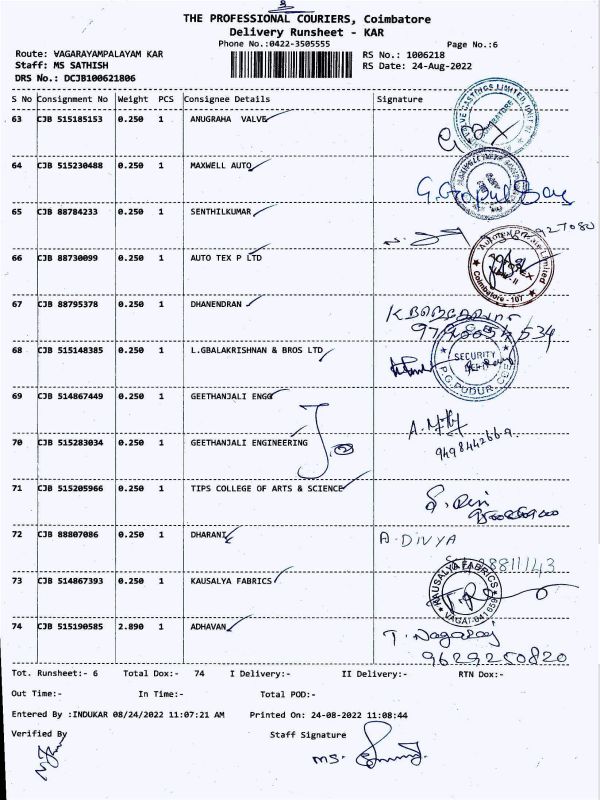 THE PROFESSIONAL COURIERS, Coimbatore
Delivery Runsheet - KAR
Phone No.:0422-3505555
Page No.:6
Route: VAGARAYAMPALAYAM KAR
RS No.: 1006218
Staff: MS SATHISH
RS Date: 24-Aug-2022
DRS No.: DCJB100621806
S No Consignment No Weight PCS Consignee Details Signature
63 CJB 515185153 0.250 1 ANUGRAHA VALVE
64 CJB 515230488 0.250 1 MAXWELL AUTO
65 CJB 88784233 0.250 1 SENTHILKUMAR
66 CJB 88730099 0.250 1 AUTO TEX P LTD
Coimbatore - 107
67 CJB 88795378 0.250 1 DHANENDRAN
68 CJB 515148385 0.250 1 L.GBALAKRISHNAN & BROS LTD
SECURITY
P.G. PUDUR, CBE
69 CJB 514867449 0.250 1 GEETHANJALI ENGG
70 CJB 515283034 0.250 1 GEETHANJALI ENGINEERING
71 CJB 515205966 0.250 1 TIPS COLLEGE OF ARTS & SCIENCE
72 CJB 88807086 0.250 1 DHARANI A. DIVYA
73 CJB 514867393 0.250 1 KAUSALYA FABRICS
KAUSALYA FABRICS
74 CJB 515190585 2.890 1 ADHAVAN T. Nagaraj
9629250820
Tot. Runsheet:- 6 Total Dox:- 74 I Delivery:- II Delivery:- RTN Dox:-
Out Time:- In Time:- Total POD:-
Entered By :INDUKAR 08/24/2022 11:07:21 AM Printed On: 24-08-2022 11:08:44
Verified By Staff Signature
MS.